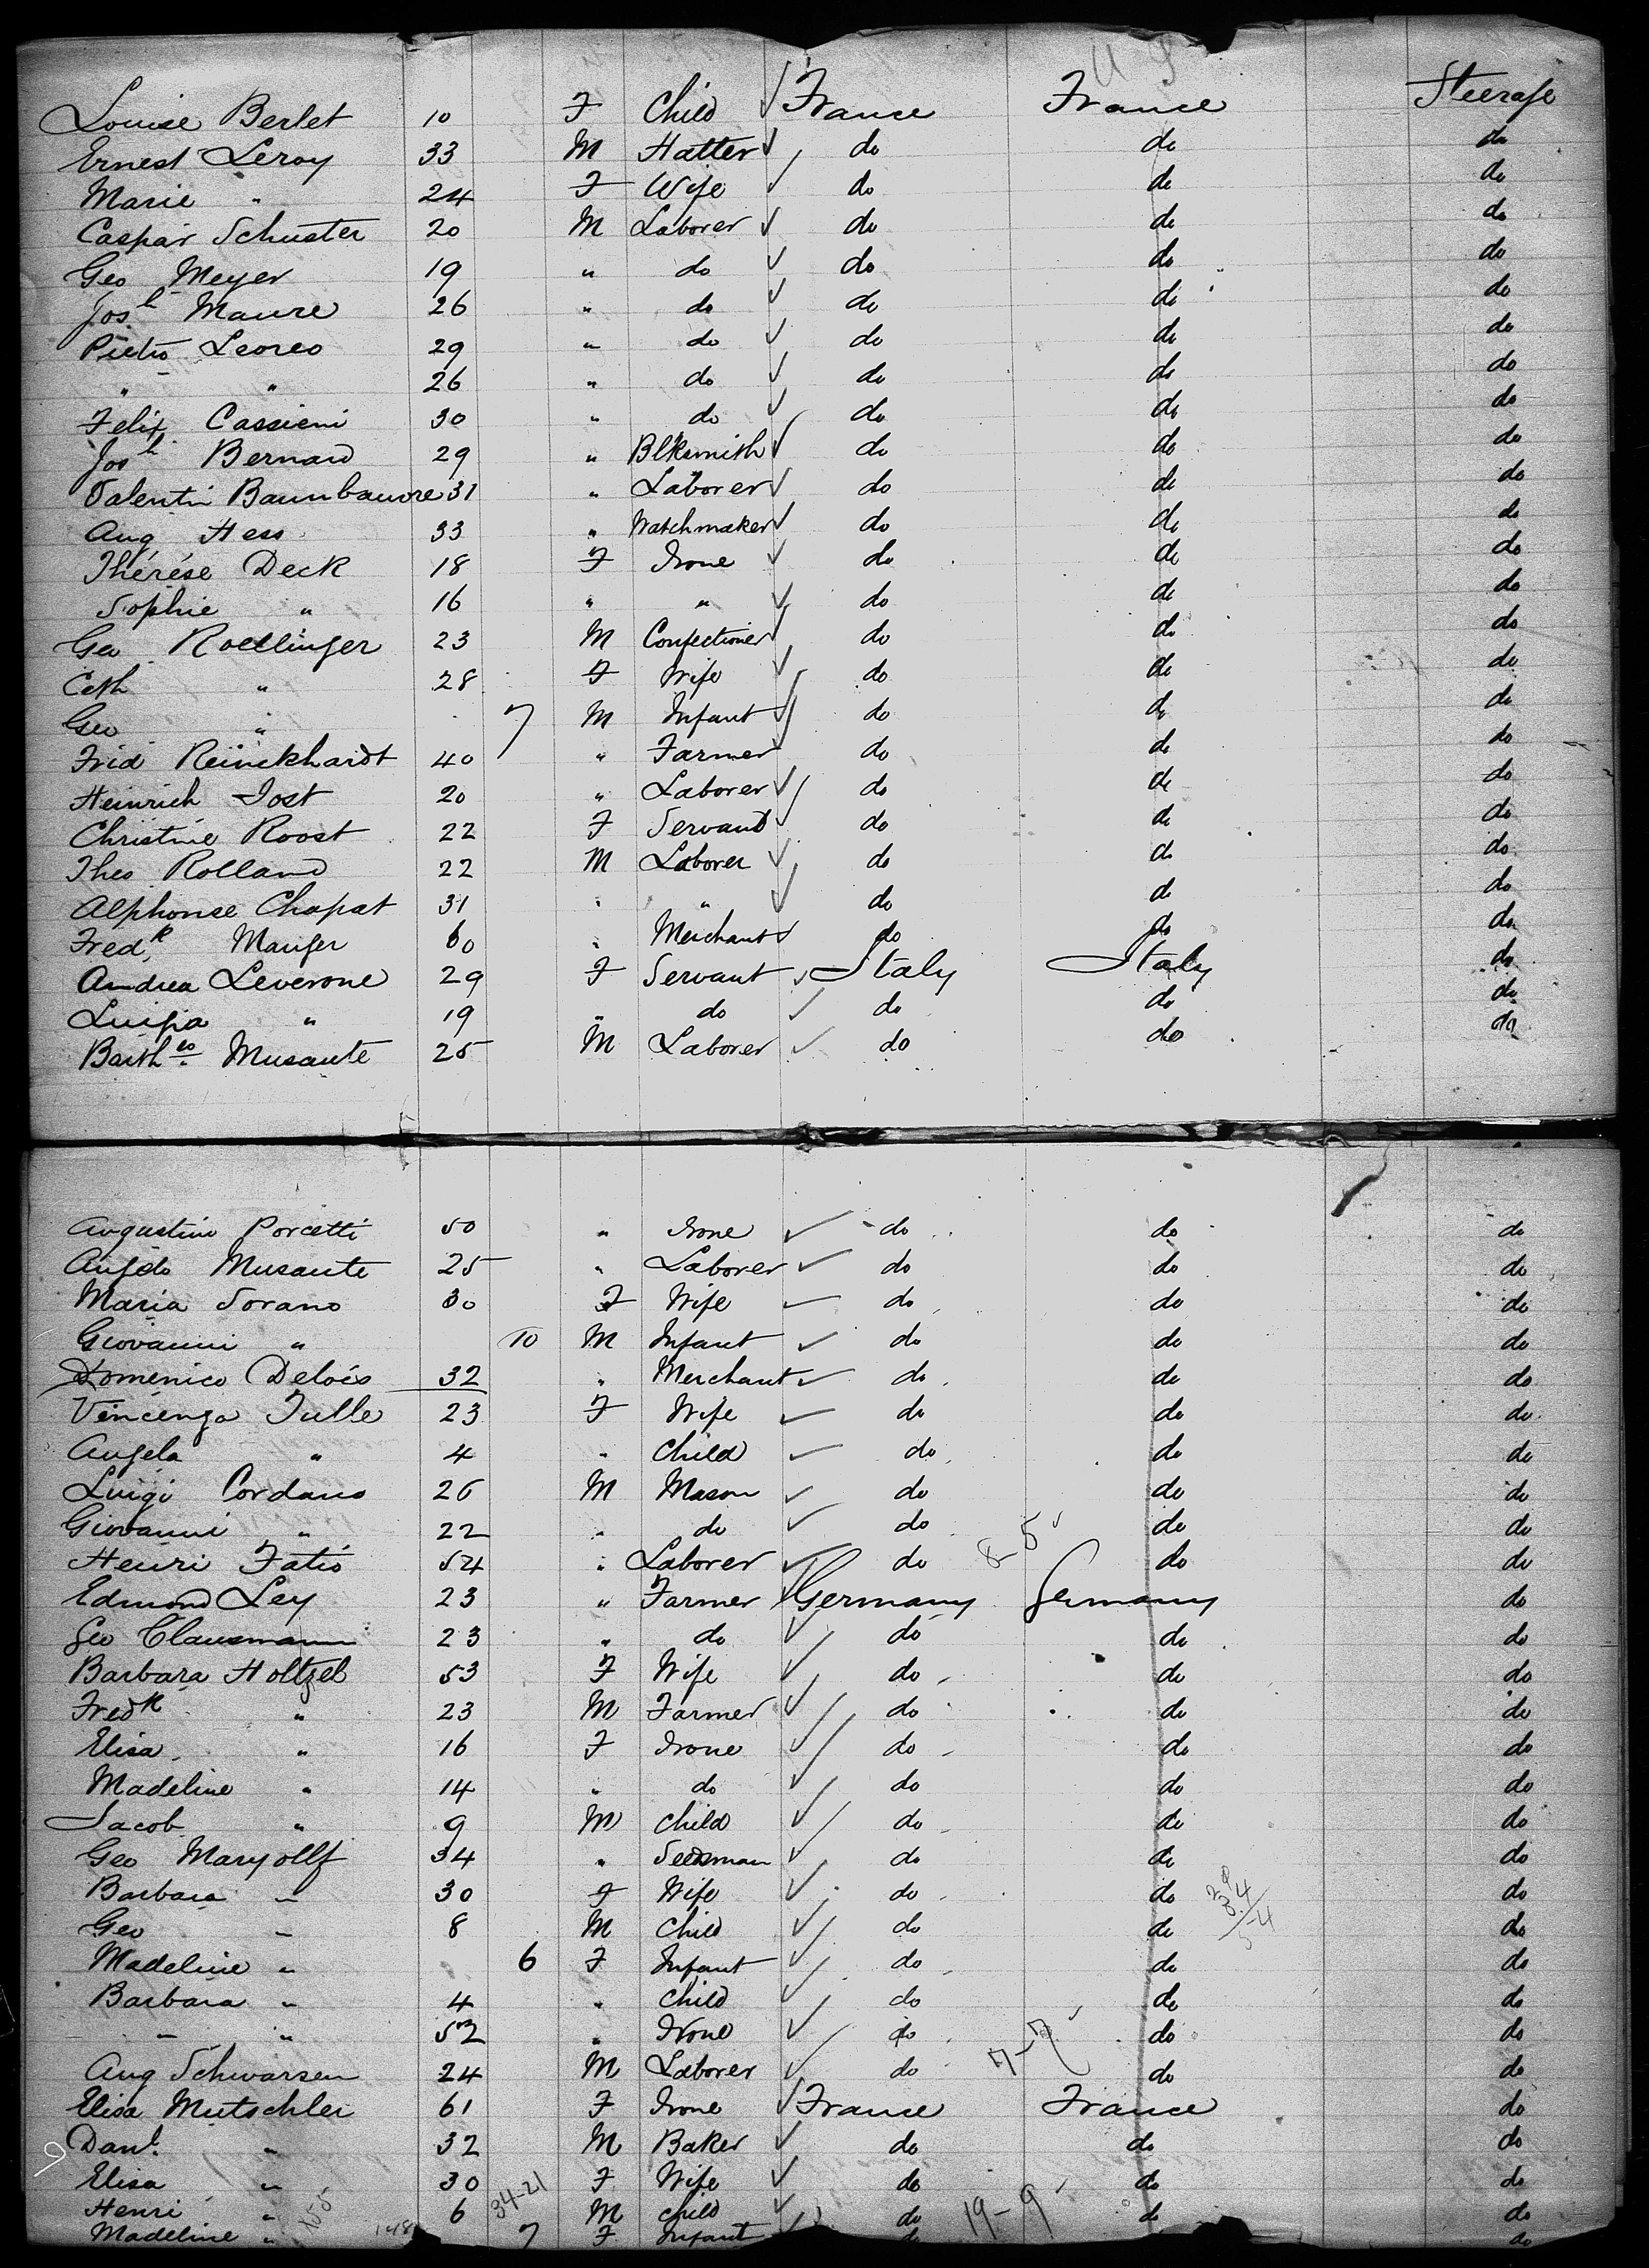 Louise Berlet 10 F Child ✓ France France Steerage
Ernest Leroy 33 M Hatter ✓ do do do
Marie " 24 F Wife ✓ do do do
Caspar Schuster 20 M Laborer ✓ do do do
Geo Meyer 19 " do ✓ do do do
Josh Maure 26 " do ✓ do do do
Pietro Leoreo 29 " do ✓ do do do
" " 26 " do ✓ do do do
Felix Cassieni 30 " do ✓ do do do
Josh Bernard 29 " Blksmith ✓ do do do
Valentin Baumbauore 31 " Laborer ✓ do do do
Aug Hess 33 " Watchmaker ✓ do do do
Thérése Deck 18 F None ✓ do do do
Sophie " 16 " " ✓ do do do
Geo Roellinger 23 M Confectioner ✓ do do do
Cath " 28 F Wife ✓ do do do
Geo " 7 M Infant ✓ do do do
Frid Reinckhardt 40 " Farmer ✓ do do do
Heinrich Jost 20 " Laborer ✓ do do do
Christine Roost 22 F Servant ✓ do do do
Theo Rolland 22 M Laborer ✓ do do do
Alphonse Chapat 31 " " ✓ do do do
Fredk Mauger 60 " Merchant ✓ do do do
Andrea Leverone 29 F Servant ✓ Italy Italy do
Luigia " 19 " do ✓ do do do
Bartheo Musante 25 M Laborer ✓ do do do
Augustino Porcetti 50 " None ✓ do do do
Angelo Musante 25 " Laborer ✓ do do do
Maria Sorano 30 F Wife ✓ do do do
Giovanni " 10 M Infant ✓ do do do
Domenico Delois 32 " Merchant ✓ do do do
Vincenza Tulle 23 F Wife ✓ do do do
Angela " 4 " Child ✓ do do do
Luigi Cordano 26 M Mason ✓ do do do
Giovanni " 22 " do ✓ do do do
Henri Fatio 54 " Laborer ✓ do 8-5 do do
Edmond Ley 23 " Farmer ✓ Germany Germany do
Geo Clausmann 23 " do ✓ do do do
Barbara Holtzel 53 F Wife ✓ do do do
Fredk " 23 M Farmer ✓ do do do
Elisa " 16 F None ✓ do do do
Madeline " 14 " do ✓ do do do
Jacob " 9 M Child ✓ do do do
Geo Maryollf 34 " Seedsman ✓ do do do
Barbara " 30 F Wife ✓ do do do
Geo " 8 M Child ✓ do do do
Madeline " 6 F Infant ✓ do do do
Barbara " 4 " Child ✓ do do do
" " 52 " None ✓ do do do
Aug Schwarsen 24 M Laborer ✓ do 7-7 do do
Elisa Mutschler 61 F None ✓ France France do
Danl " 32 M Baker ✓ do do do
Elisa " 30 F Wife ✓ do do do
Henri " 6 34-21 M child ✓ do 19-9 do do
Madeline " 7 F Infant ✓ do do do